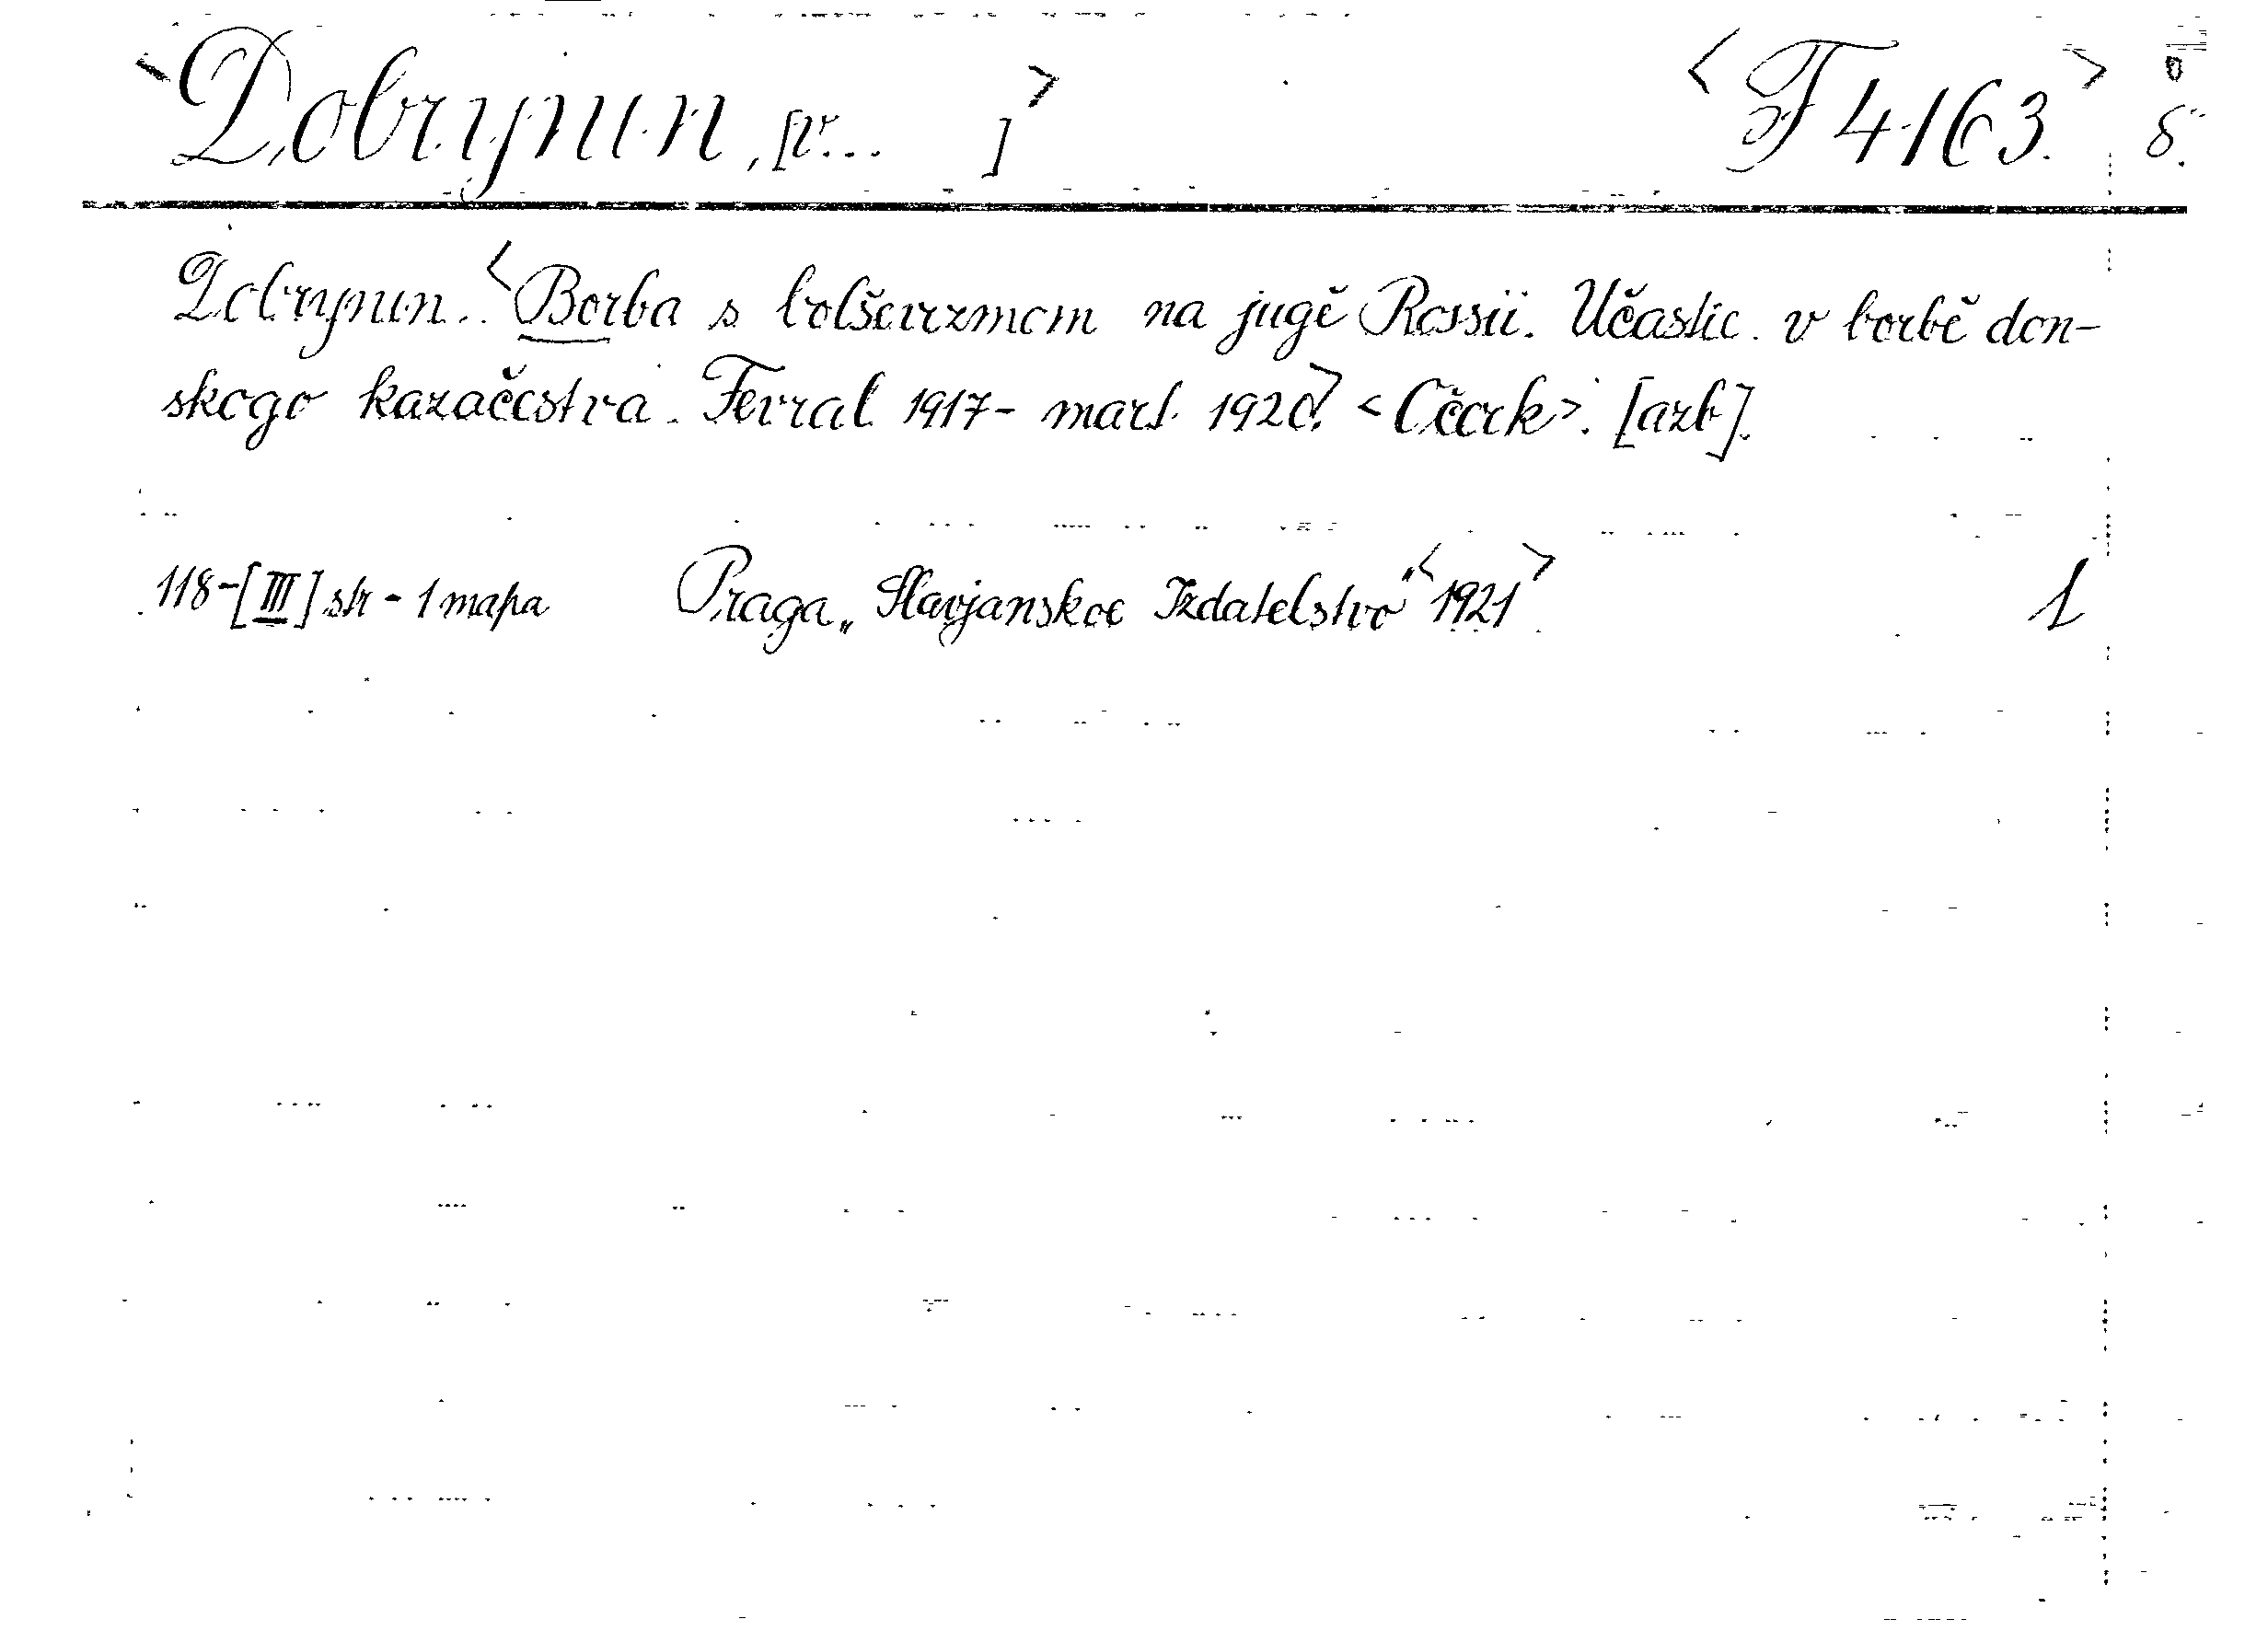 <Dobrynin, [V... ]> <F 4163.> 8.
Dobrynin.. <Borba s bolševizmom na jugě Rossii. Učastie v borbě don-
skogo kazačestva. Fevral 1917- mart 1920.> <Očerk>. [azb].
118-[III] str - 1 mapa Praga „Slavjanskoe Izdatelstvo" <1921> 1